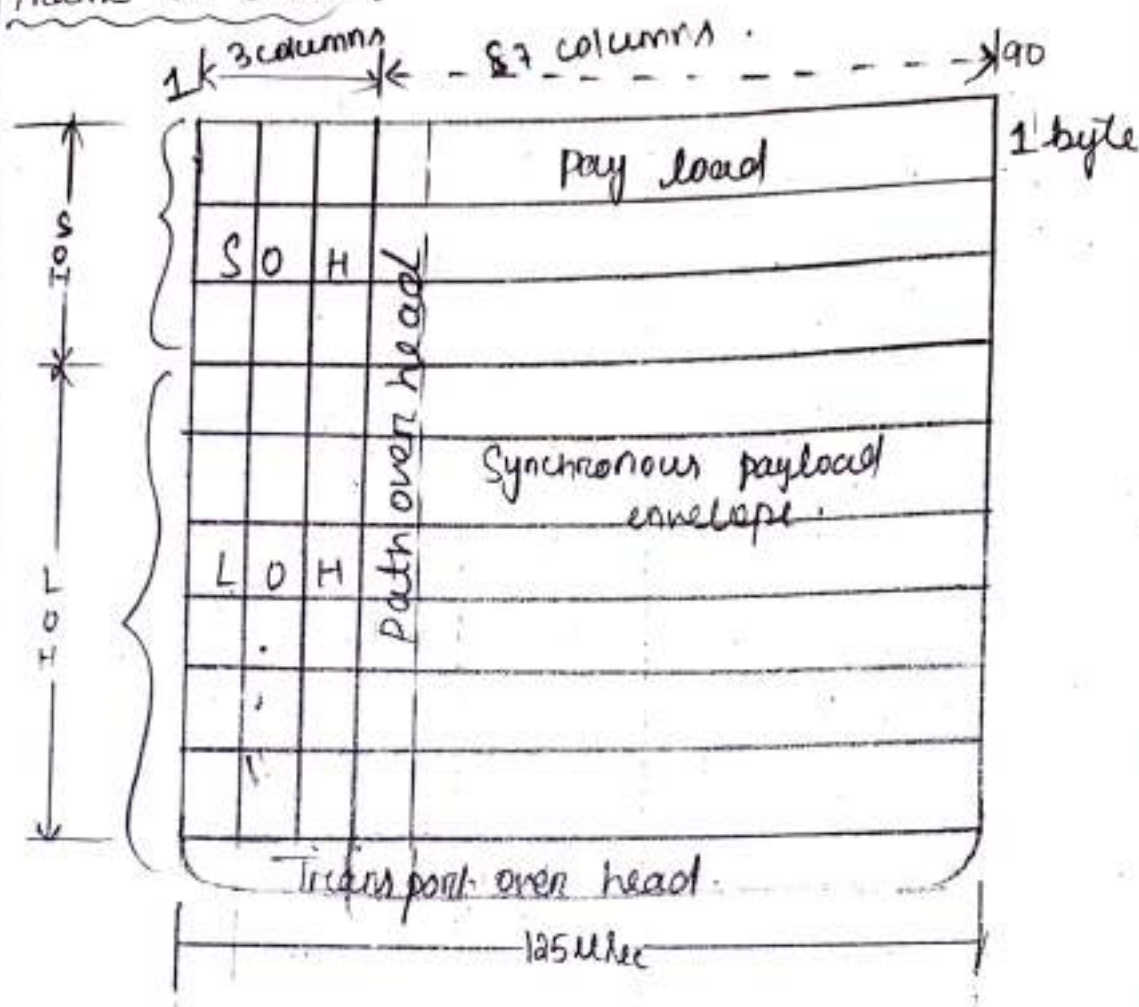 1 3 columns 87 columns . 90
1 byte
pay load
SOH
S O H
Path over head
Synchronous payload
envelope .
LOH
L O H
Transport over head .
125 µsec